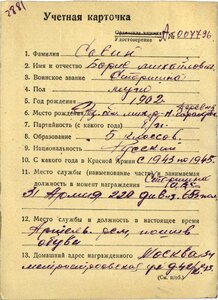 2881
Учетная карточка
Удостоверение
А № 007796
1. Фамилия Савин
2. Имя и отчество Борис Михайлович
3. Воинское звание Старшина
4. Пол муж
5. Год рождения 1902
6. Место рождения
7. Партийность (с какого года) б/п
8. Образование 5 классов
9. Национальность Русский
10. С какого года в Красной Армии с 1943 по 1945.
11. Место службы (наименование части) и занимаемая
должность в момент награждения Старшина
31 Армия 220 див.
12. Место службы и должность в настоящее время
Артель рем. пошив
обуви
13. Домашний адрес награжденного Москва
(См. н/об.)